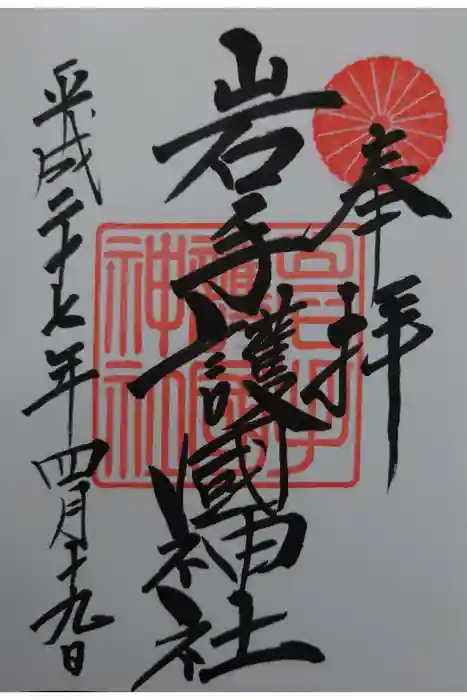 奉拝
岩手護國神社
平成二十七年四月十九日
岩手
護國
神社